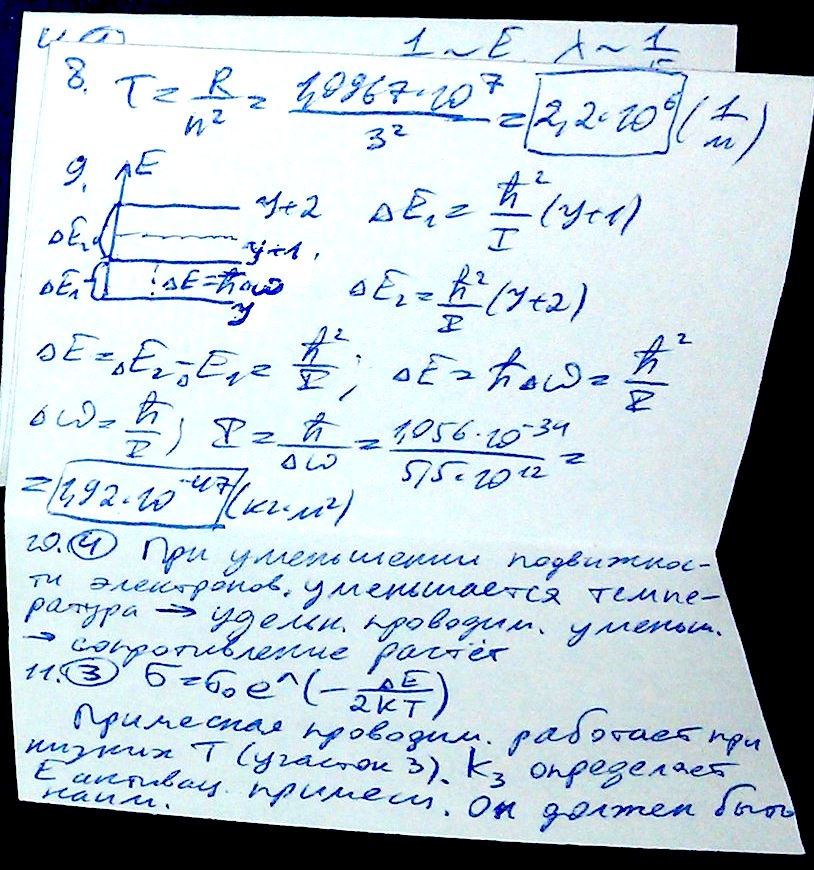 1 ~ E λ ~ 1
8. T = R/n² = 1,0967·10⁷/3² = 2,2·10⁶ (1/м)
9. E
y+2 ΔE₁ = ħ²/I (y+1)
ΔE₂ y+1
ΔE₁ ΔE=ħΔω ΔE₂ = ħ²/I (y+2)
y
ΔE = ΔE₂-ΔE₁ = ħ²/I; ΔE = ħΔω = ħ²/I
Δω = ħ/I; I = ħ/Δω = 1,056·10⁻³⁴/5,5·10¹² =
= 1,92·10⁻⁴⁷ (кг·м²)
10. 4 При уменьшении подвижнос-
ти электронов, уменьшается темпе-
ратура → удельн. проводим. уменьш.
→ сопротивление растёт
11. 3 σ = σ₀e^(-ΔE/2kT)
Примесная проводим. работает при
низких T (участок 3). K₃ определяет
E активац. примеси. Он должен быть
наим.